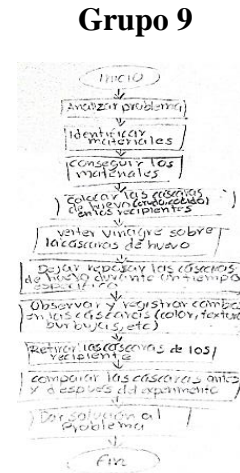 Grupo 9
INICIO
Analizar problema
Identificar
materiales
conseguir los
materiales
colocar las cáscaras
de huevo
en los recipientes
verter vinagre sobre
la cáscaras de huevo
Dejar reposar las cáscaras
de huevo durante un tiempo
específico
Observar y registrar cambios
en las cáscaras (color, textura
burbujas, etc)
Retirar las cáscaras de los
recipiente
comparar las cáscaras antes
y después del experimento
Dar solución al
problema
Fin